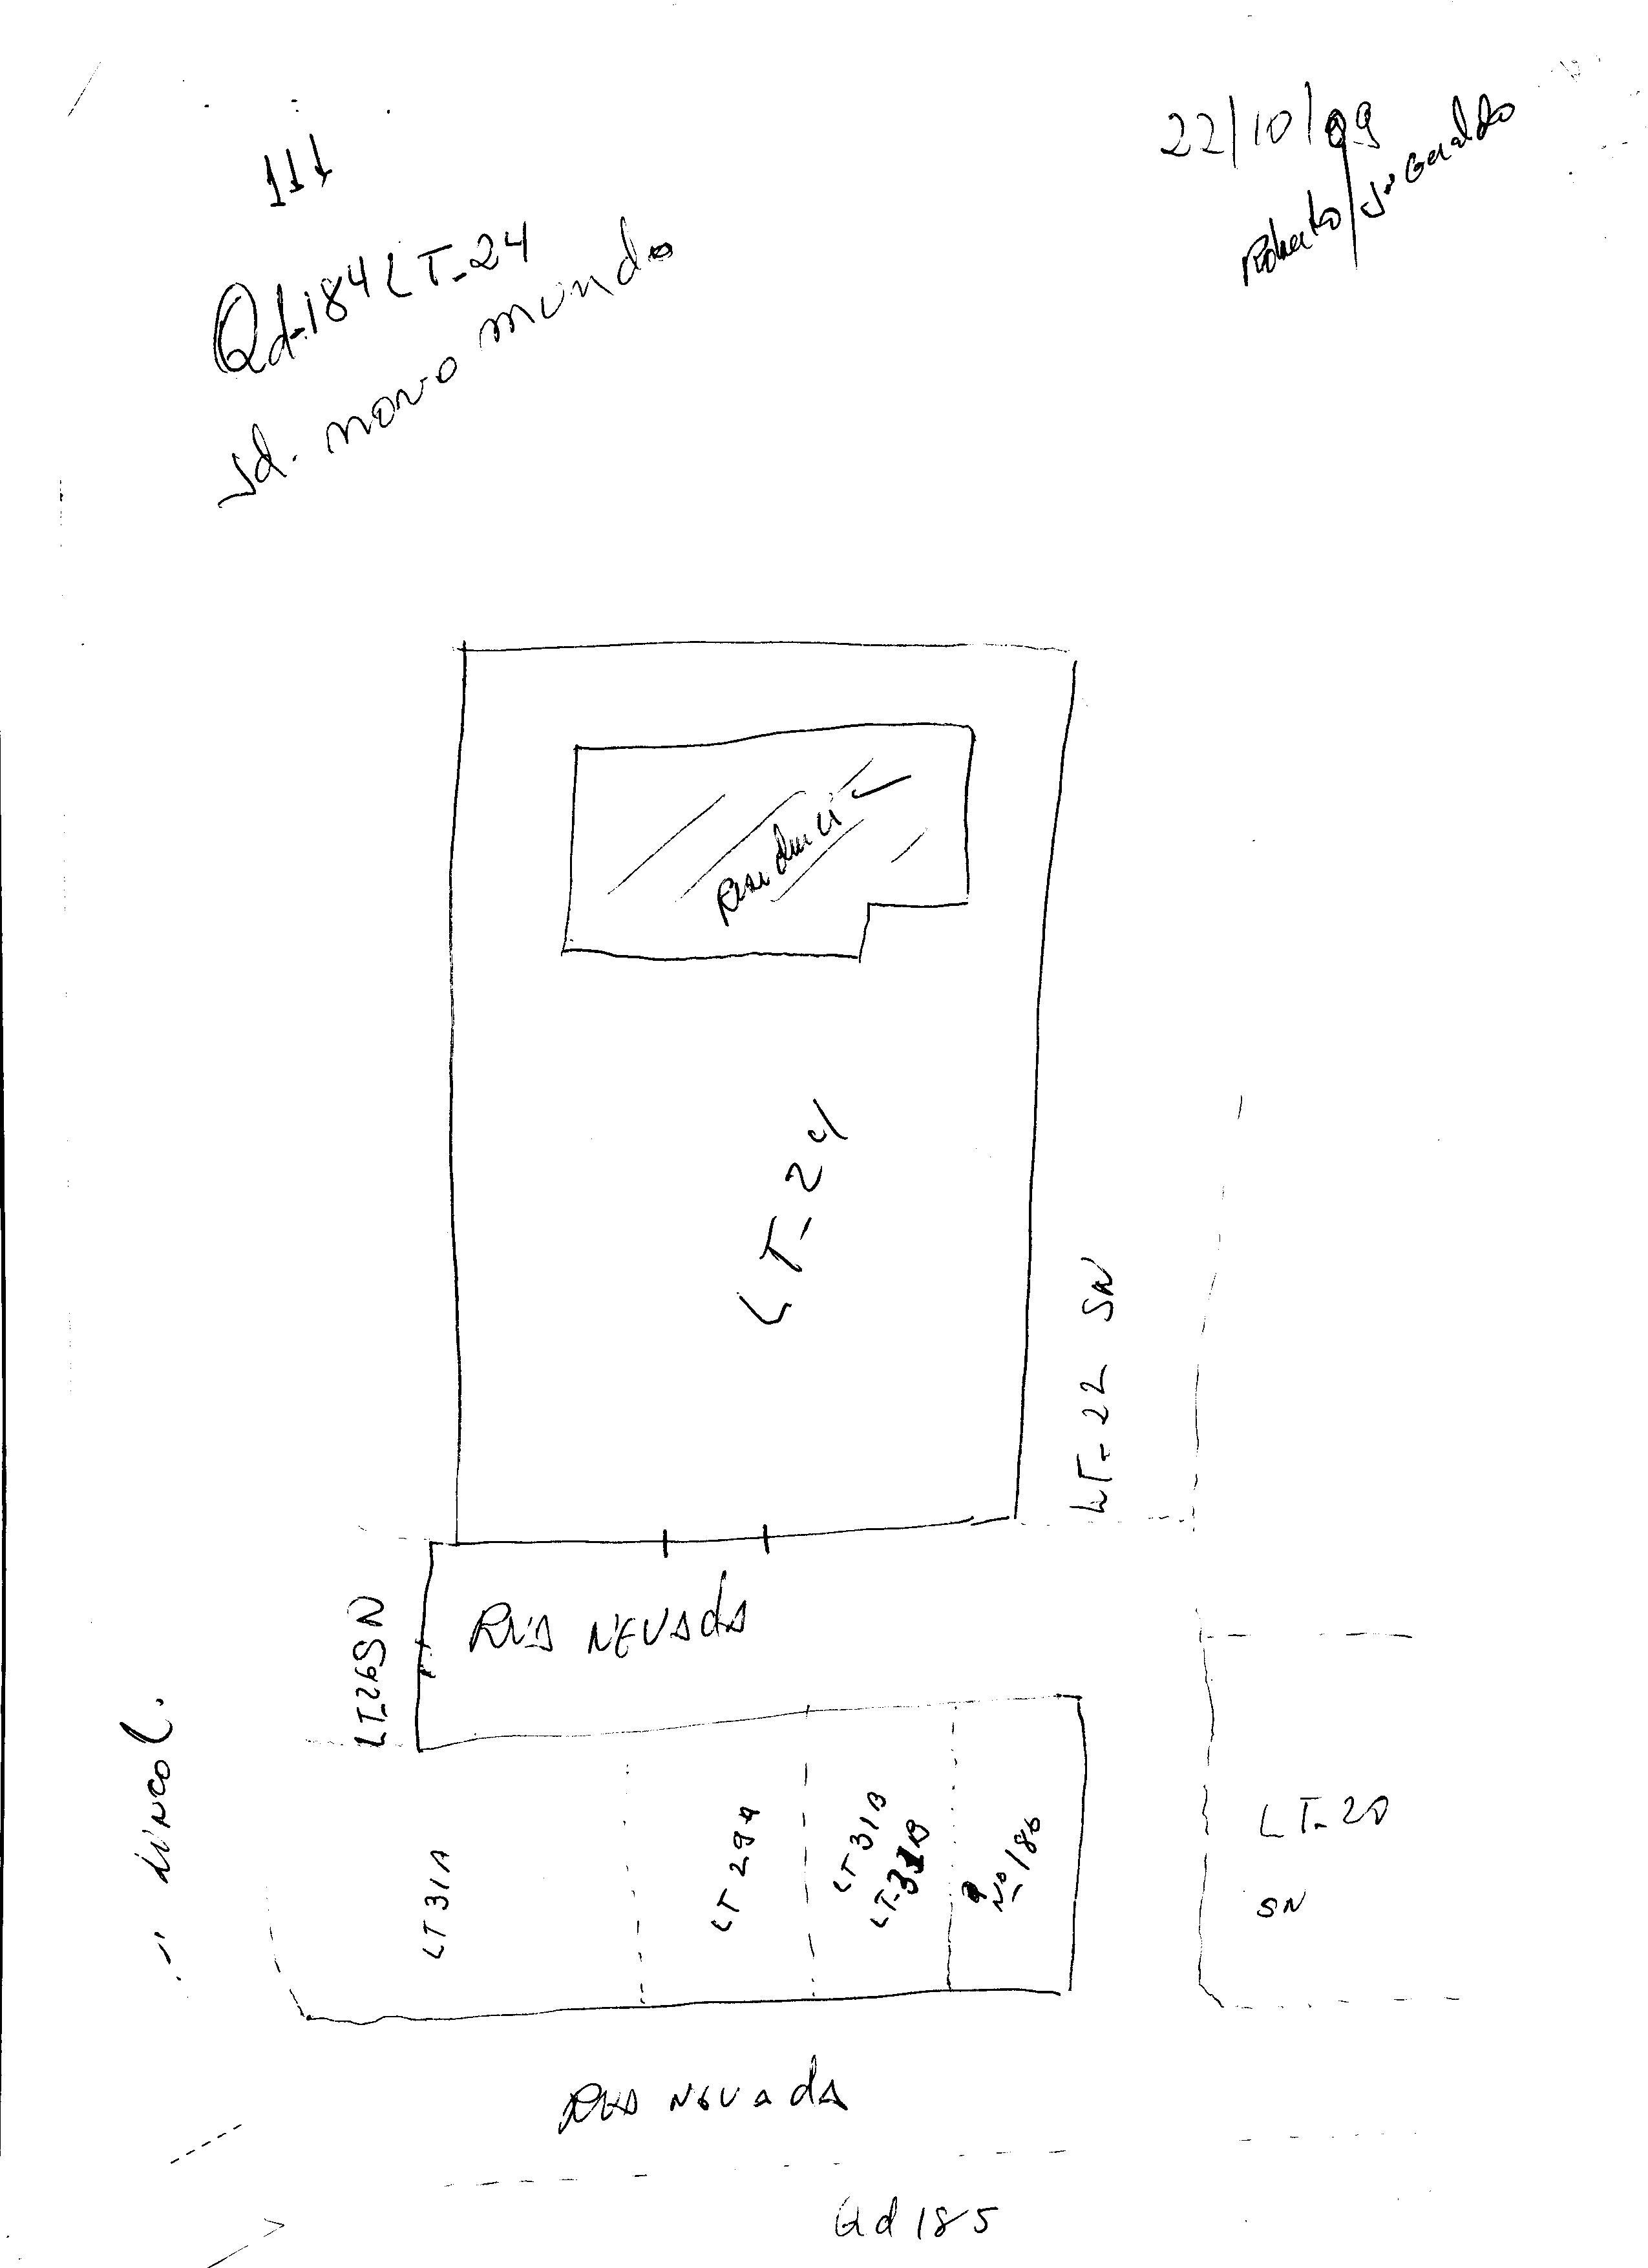 111
22/10/09
Roberto/José Geraldo
Qd-184 LT-24
Jd. novo mundo
Residencia
LT-24
LT-22 SN
LT-26 SN
RUA NEVADA
LINCOL.
LT 31A
LT 29A
LT 31B
LT-31B
Nº 186
LT-20
SN
RUA NEVADA
Qd 185